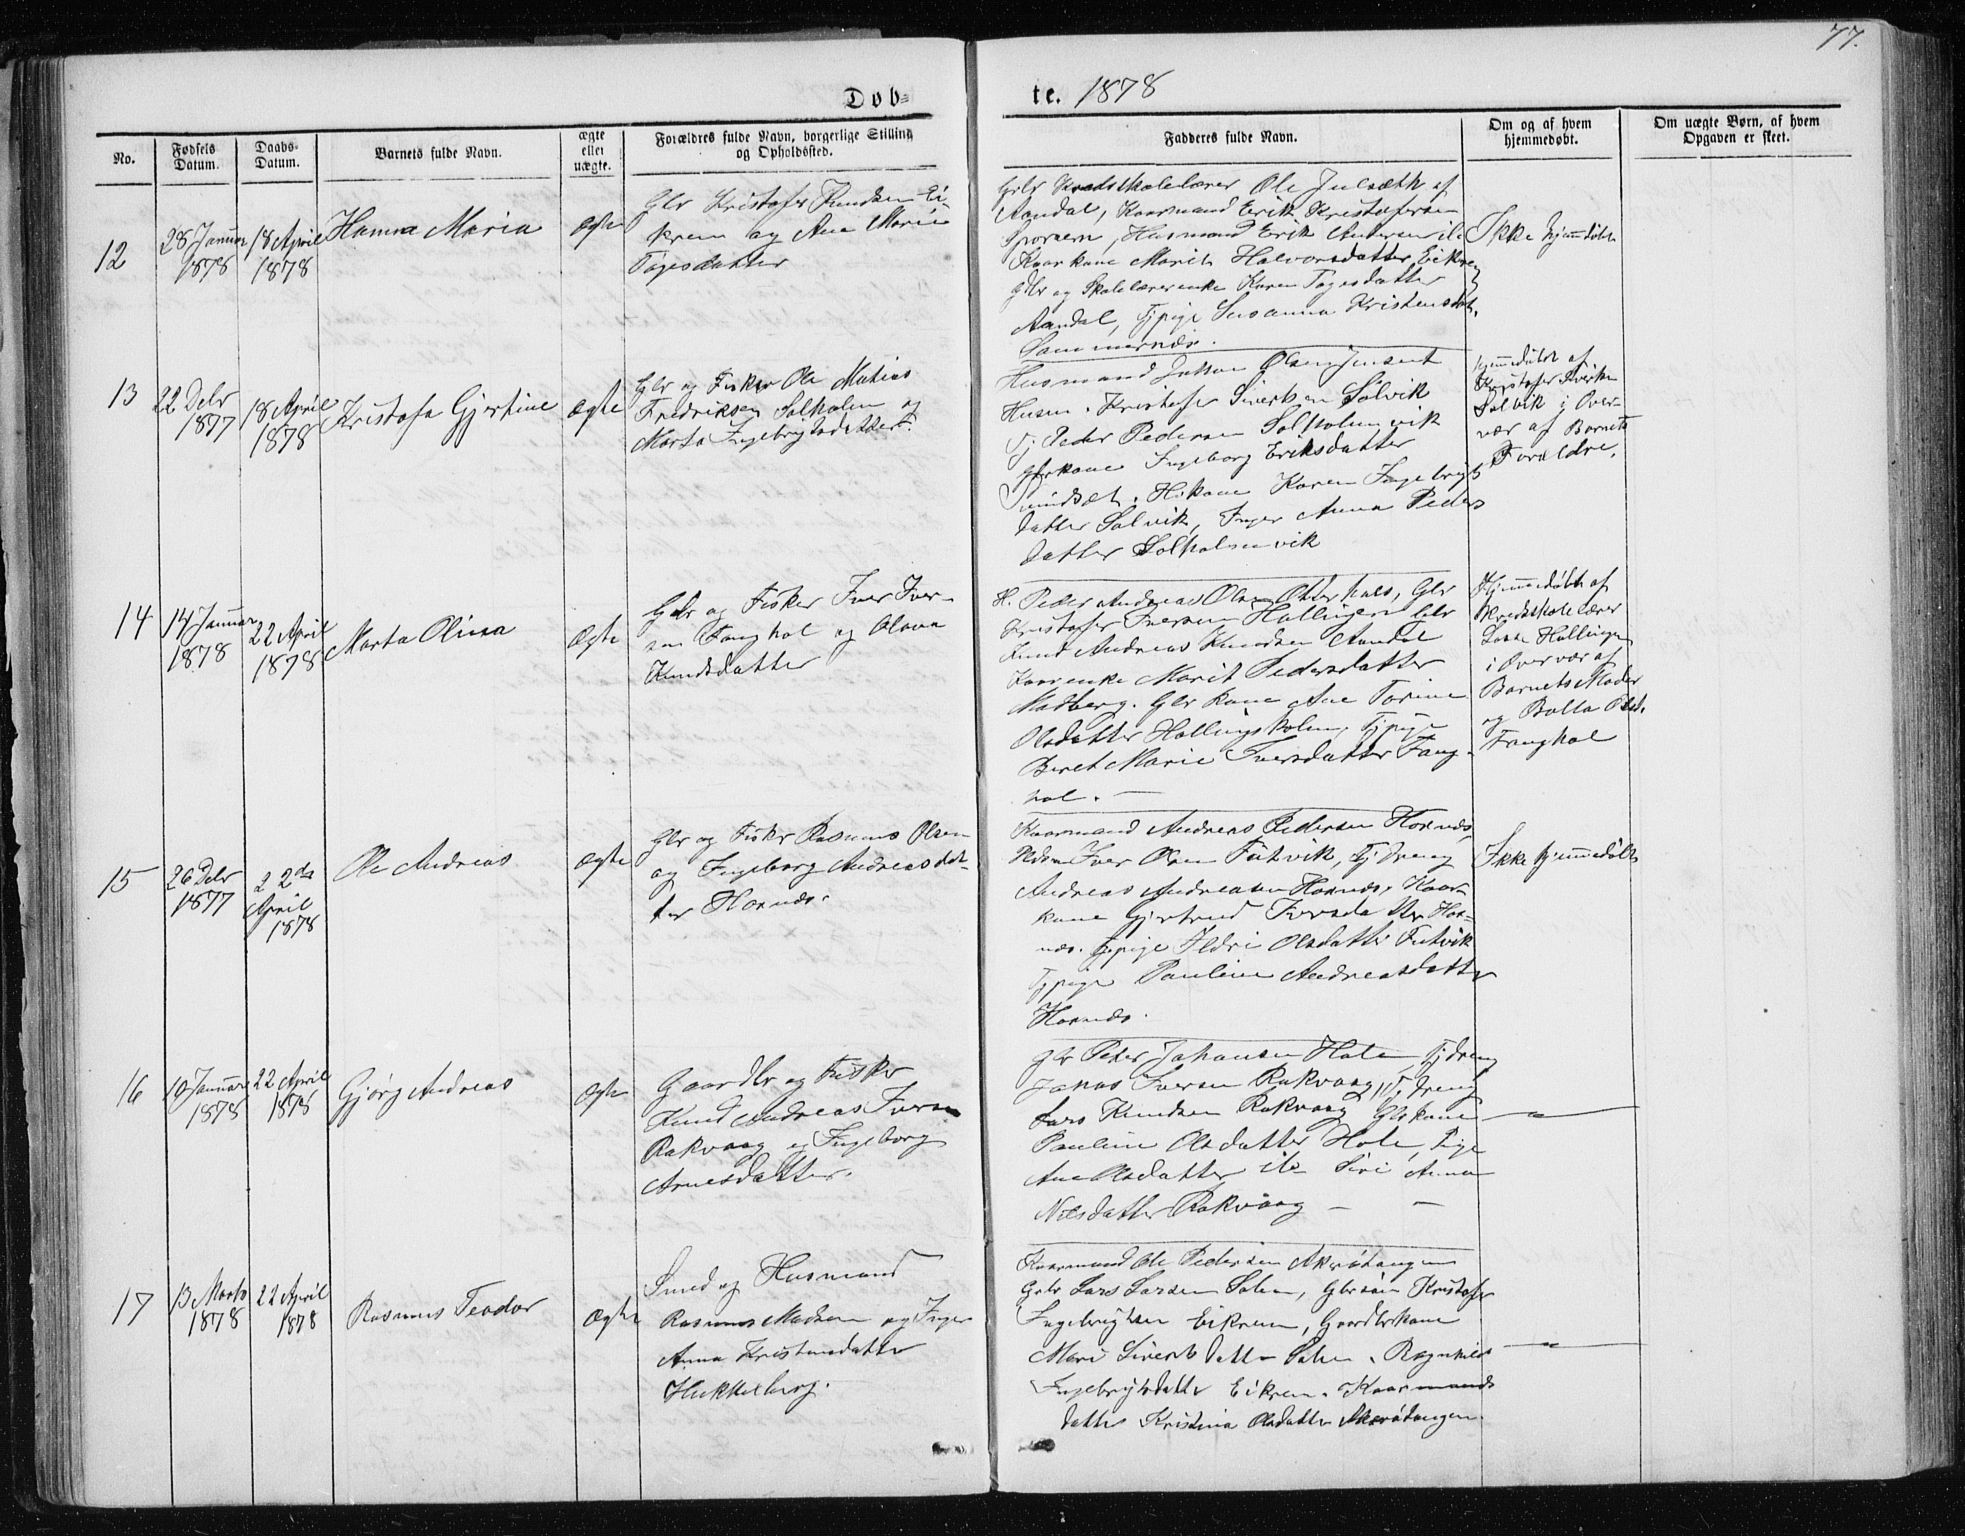 77.
Døb=
te. 1878
No.
Fødsels
Datum.
Daabs-
Datum.
Barnets fulde Navn.
ægte
eller
uægte.
Forældres fulde Navn, borgerlige Stilling
og Opholdssted.
Fadderes fulde Navn.
Om og af hvem
hjemmedøbt.
Om uægte Børn, af hvem
Opgaven er skeet.
12
28 Januar
1878
18 April
1878
Hanna Maria
ægte
Gbr Kristofer Knudsen Ei-
krem og Ane Marie
Tøgesdatter
Gbr Kredsskolelærer Ole Julsæth af
Aandal, Kaarmand Erik Kristofersen
Husmand Erik Andersen ib
Kaarkone Marit Halvorsdatter Eikrem
Gbr og Skolelærerenke Karen Tøgesdatter
Aandal, Tjpige Susanna Kristensdat.
Sammernæs.
Ikke hjemmdøbt
13
22 Debr
1877
18 April
1878
Kristofa Gjertine
ægte
Gbr og Fisker Ole Matias
Fredriksen Solholm og
Marta Ingebrigtsdatter.
Husmand Olsen
Husen. Kristofer Sivertsen Solvik
Peder Pedersen Solholmvik
Gbrkone Ingeborg Eriksdatter
H.kone Karen Ingebrigts
datter Solvik, Inger Anna Peders
datter Solholmvik
hjemmedøbt af
Kristofer Sivertsen
Solvik i Over-
vær af Barnets
Forældre.
14
14 Januar
1878
22 April
1878
Marta Olina
ægte
Gbr og Fisker Iver Iver-
sen Fanghol og Olava
Knudsdatter
H. Peder Andreas Olsen Otterhals, Gbr
Kristofer Iversen Hallingen Gbr
Knud Andreas Knudsen Aandal
Kaarenke Marit Pedersdatter
Malberg. Gbr kone Ane Torine
Olsdatter Hallingsholm, Tjpige
Beret Marie Iversdatter Fang-
hol. —
Hjemmedøbt af
Kredsskolelærer
Lasse Hallingen
i Overvær af
Barnets Moder
og
Fanghol
15
26 Debr
1877
22de
April
1878
Ole Andreas
ægte
Gbr og Fisker Rasmus Olsen
og Ingeborg Andreasdat-
ter Hornæs.
Kaarmand Andreas Pedersen Hornæs,
Iver Olsen Futvik, Tjdreng
Andreas Andreasen Hornæs, Kaar-
kone Gjertrud Iversdatter Hor-
næs. Tjpige Ildri Olsdatter Futvik
Tjpige Pauline Andreasdatter
Hornæs.
Ikke hjemmedøbt
16
10 Januar
1878
22 April
1878
Gjørg Andreas
ægte
Gaardbr og Fisker
Knud Andreas Iversen
Rakvaag og Ingeborg
Arnesdatter.
Gbr Peder Johansen Hole, Tjdreng
Jakob Iversen Rakvaag, Tjdreng
Lars Knudsen Rakvaag Gbrkone
Pauline Olsdatter Hole, Pige
Ane Olsdatter ib Siri Anna
Nilsdatter Rakvaag — —
— " —
17
13 Marts
1878
22 April
1878
Rasmus Teodor
ægte
Smed og Husmand
Rasmus Madsen og Inger
Anna Kristensdatter
Hukkelberg.
Kaarmand Ole Pedersen Akerøtangen
Gbr Lars Larsen Solem, Gbrsøn Kristofer
Ingebrigtsen Eikrem, Gaardbrkone
Mari Sivertsdatter Solem. Ragnhild
Ingebrigtsdatter Eikrem. Kaarmands
datter Kristina Olsdatter Akerøtangen.
— " —